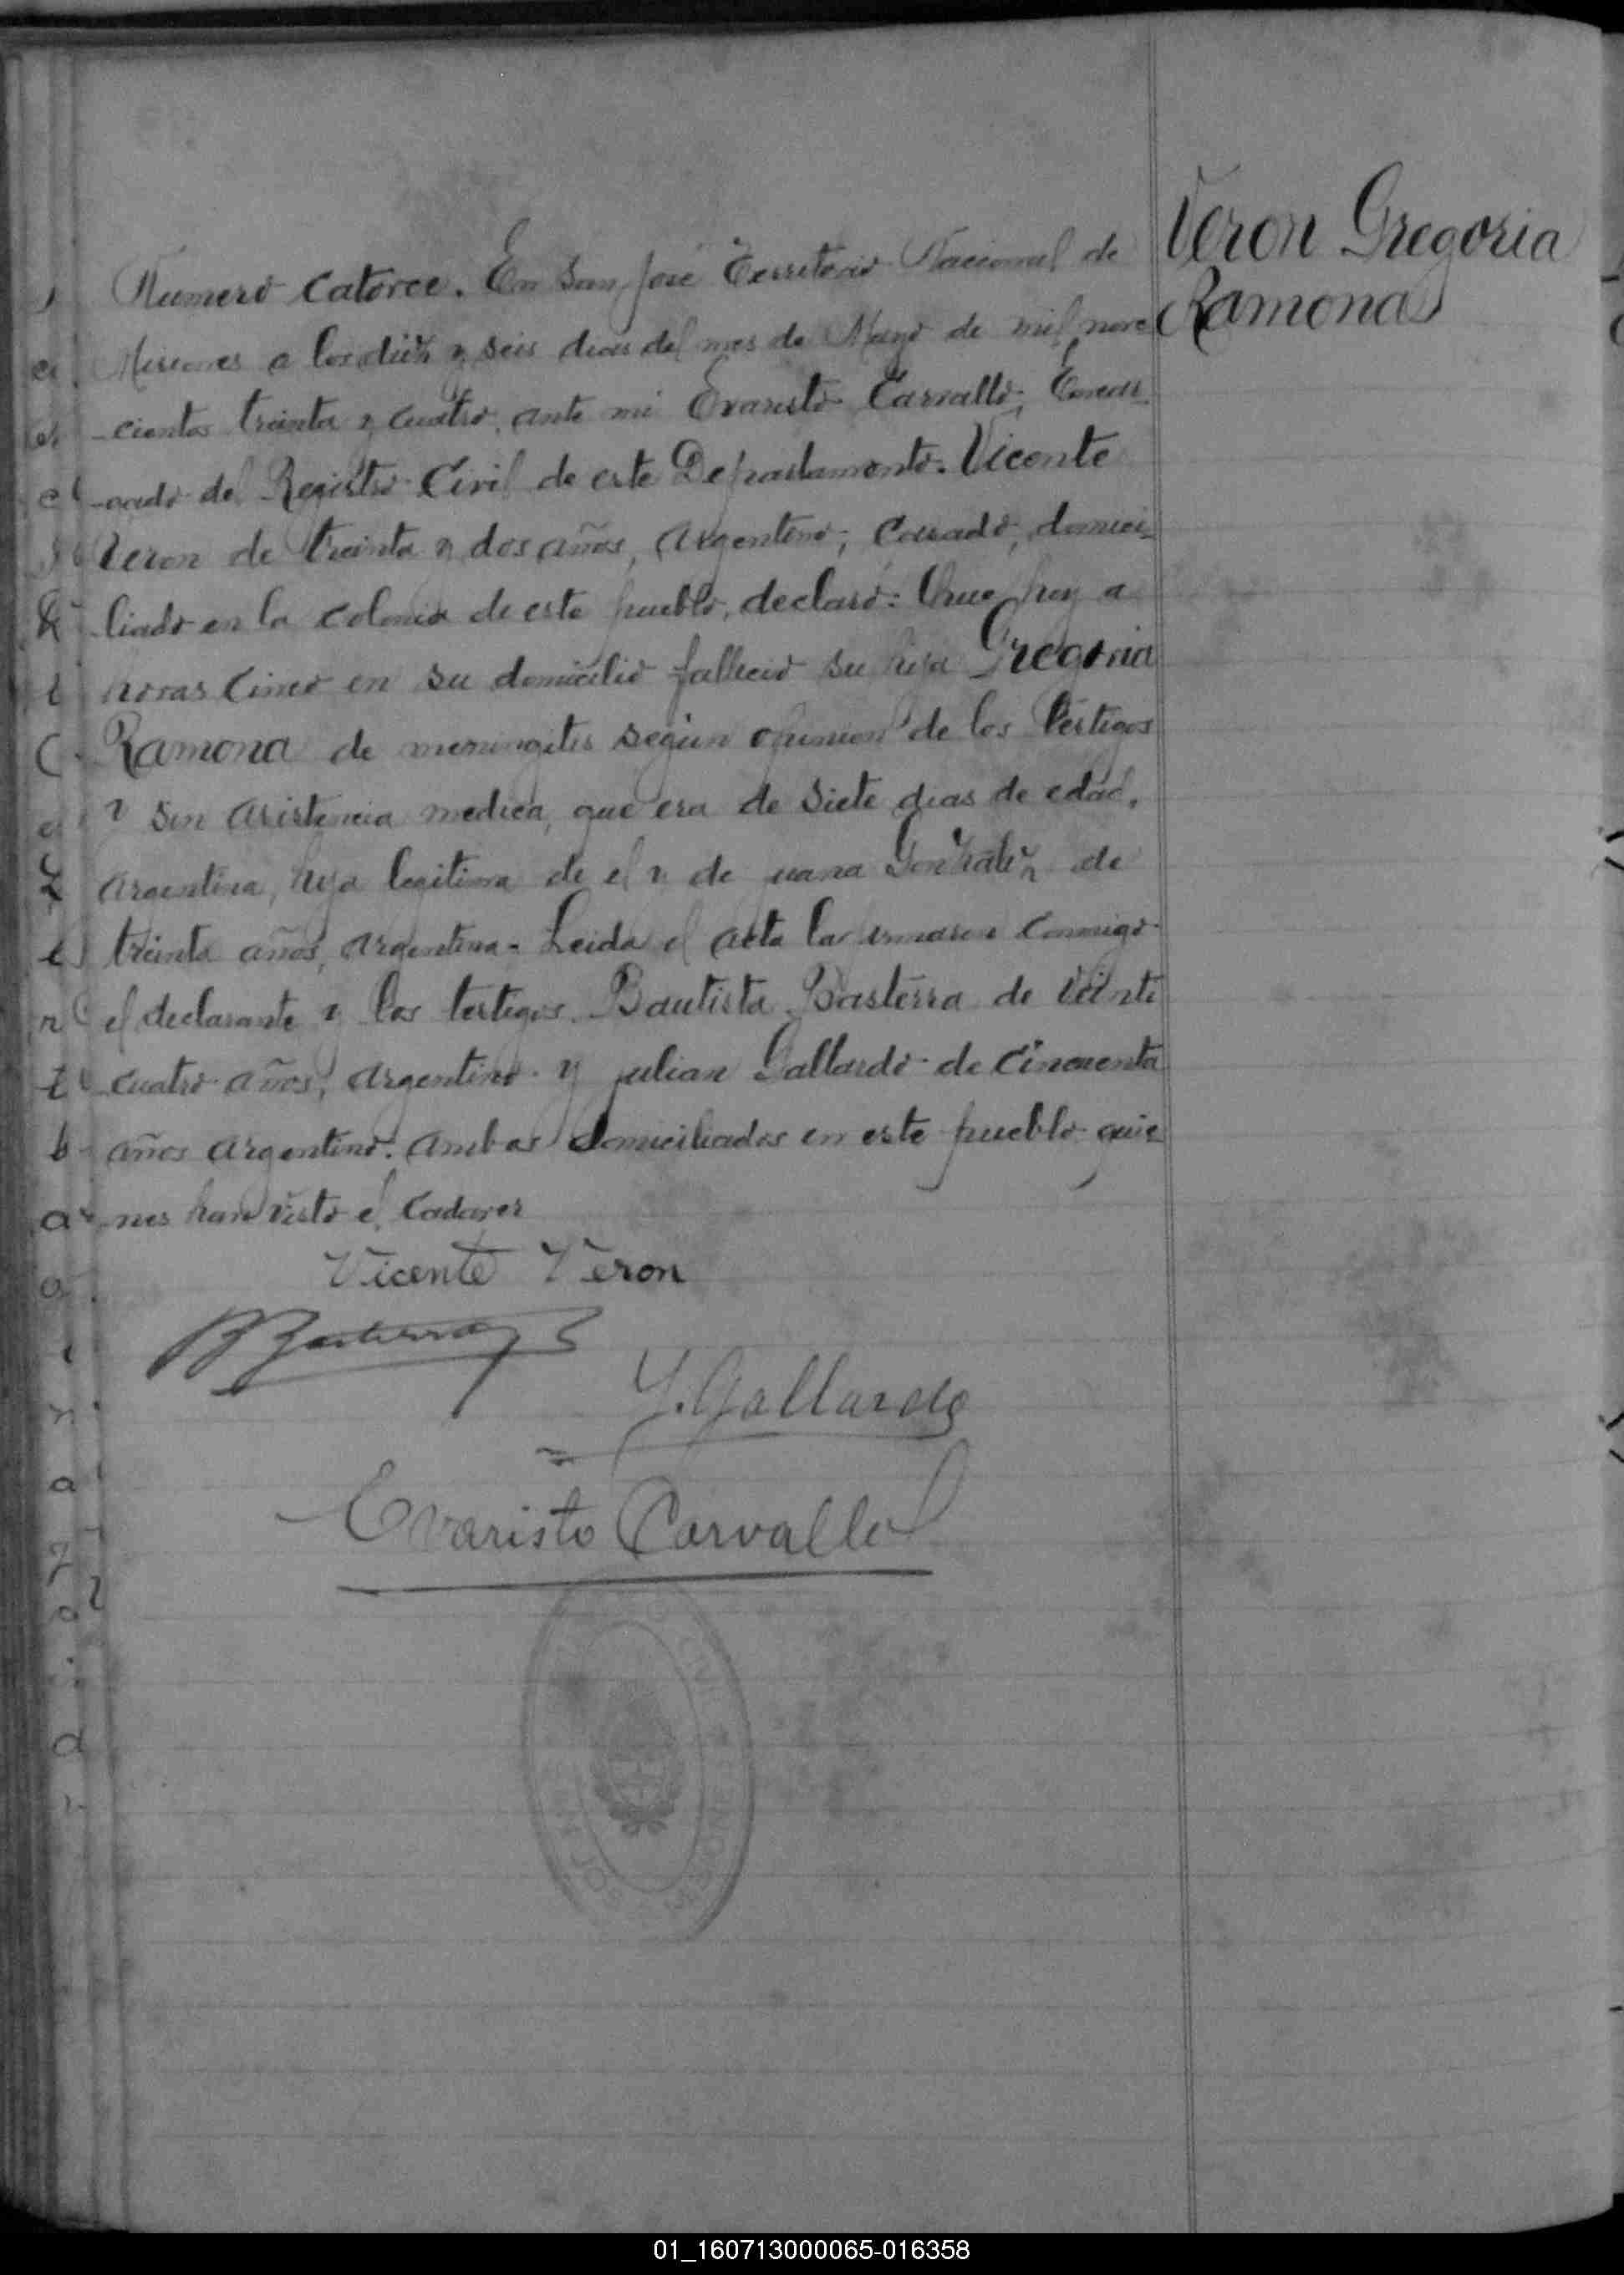 Veron Gregoria
Ramona
Numero Catorce. En San José Territorio Nacional de
Misiones a los diéz y seis dias del mes de Mayo de mil nove
-cientos treinta y cuatro, ante mi Evaristo Carvallo, Encar-
-gado del Registro Civil de este Departamento. Vicente
Veron de treinta y dos años, Argentino, Casado, domici-
liado en la Colonia de este pueblo, declaró: Que hoy a
horas Cinco en su domicilio falleció su hija Gregoria
Ramona de meningitis según opinion de los testigos
y sin asistencia medica, que era de siete dias de edad,
Argentina, hija legitima de el y de juana Gonzaléz de
treinta años, Argentina - Leida el acta la firmaron Conmigo
el declarante y los testigos Bautista Basterra de Veinte
cuatro años, Argentino y julian Gallardo de Cincuenta
años Argentino. Ambos domiciliados en este pueblo quie
nes han visto el Cadaver
Vicente Veron
B Basterra
J. Gallardo
Evaristo Carvallo
01_160713000065-016358